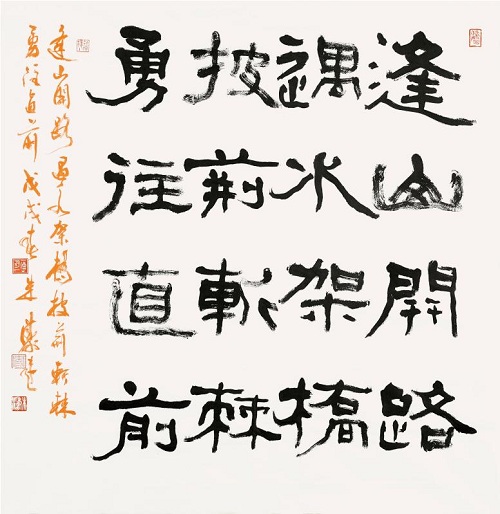 逢山開路
遇水架橋
披荊斬棘
勇往直前
逢山開路遇水架橋披荊斬棘
勇往直前 戊戌春 朱